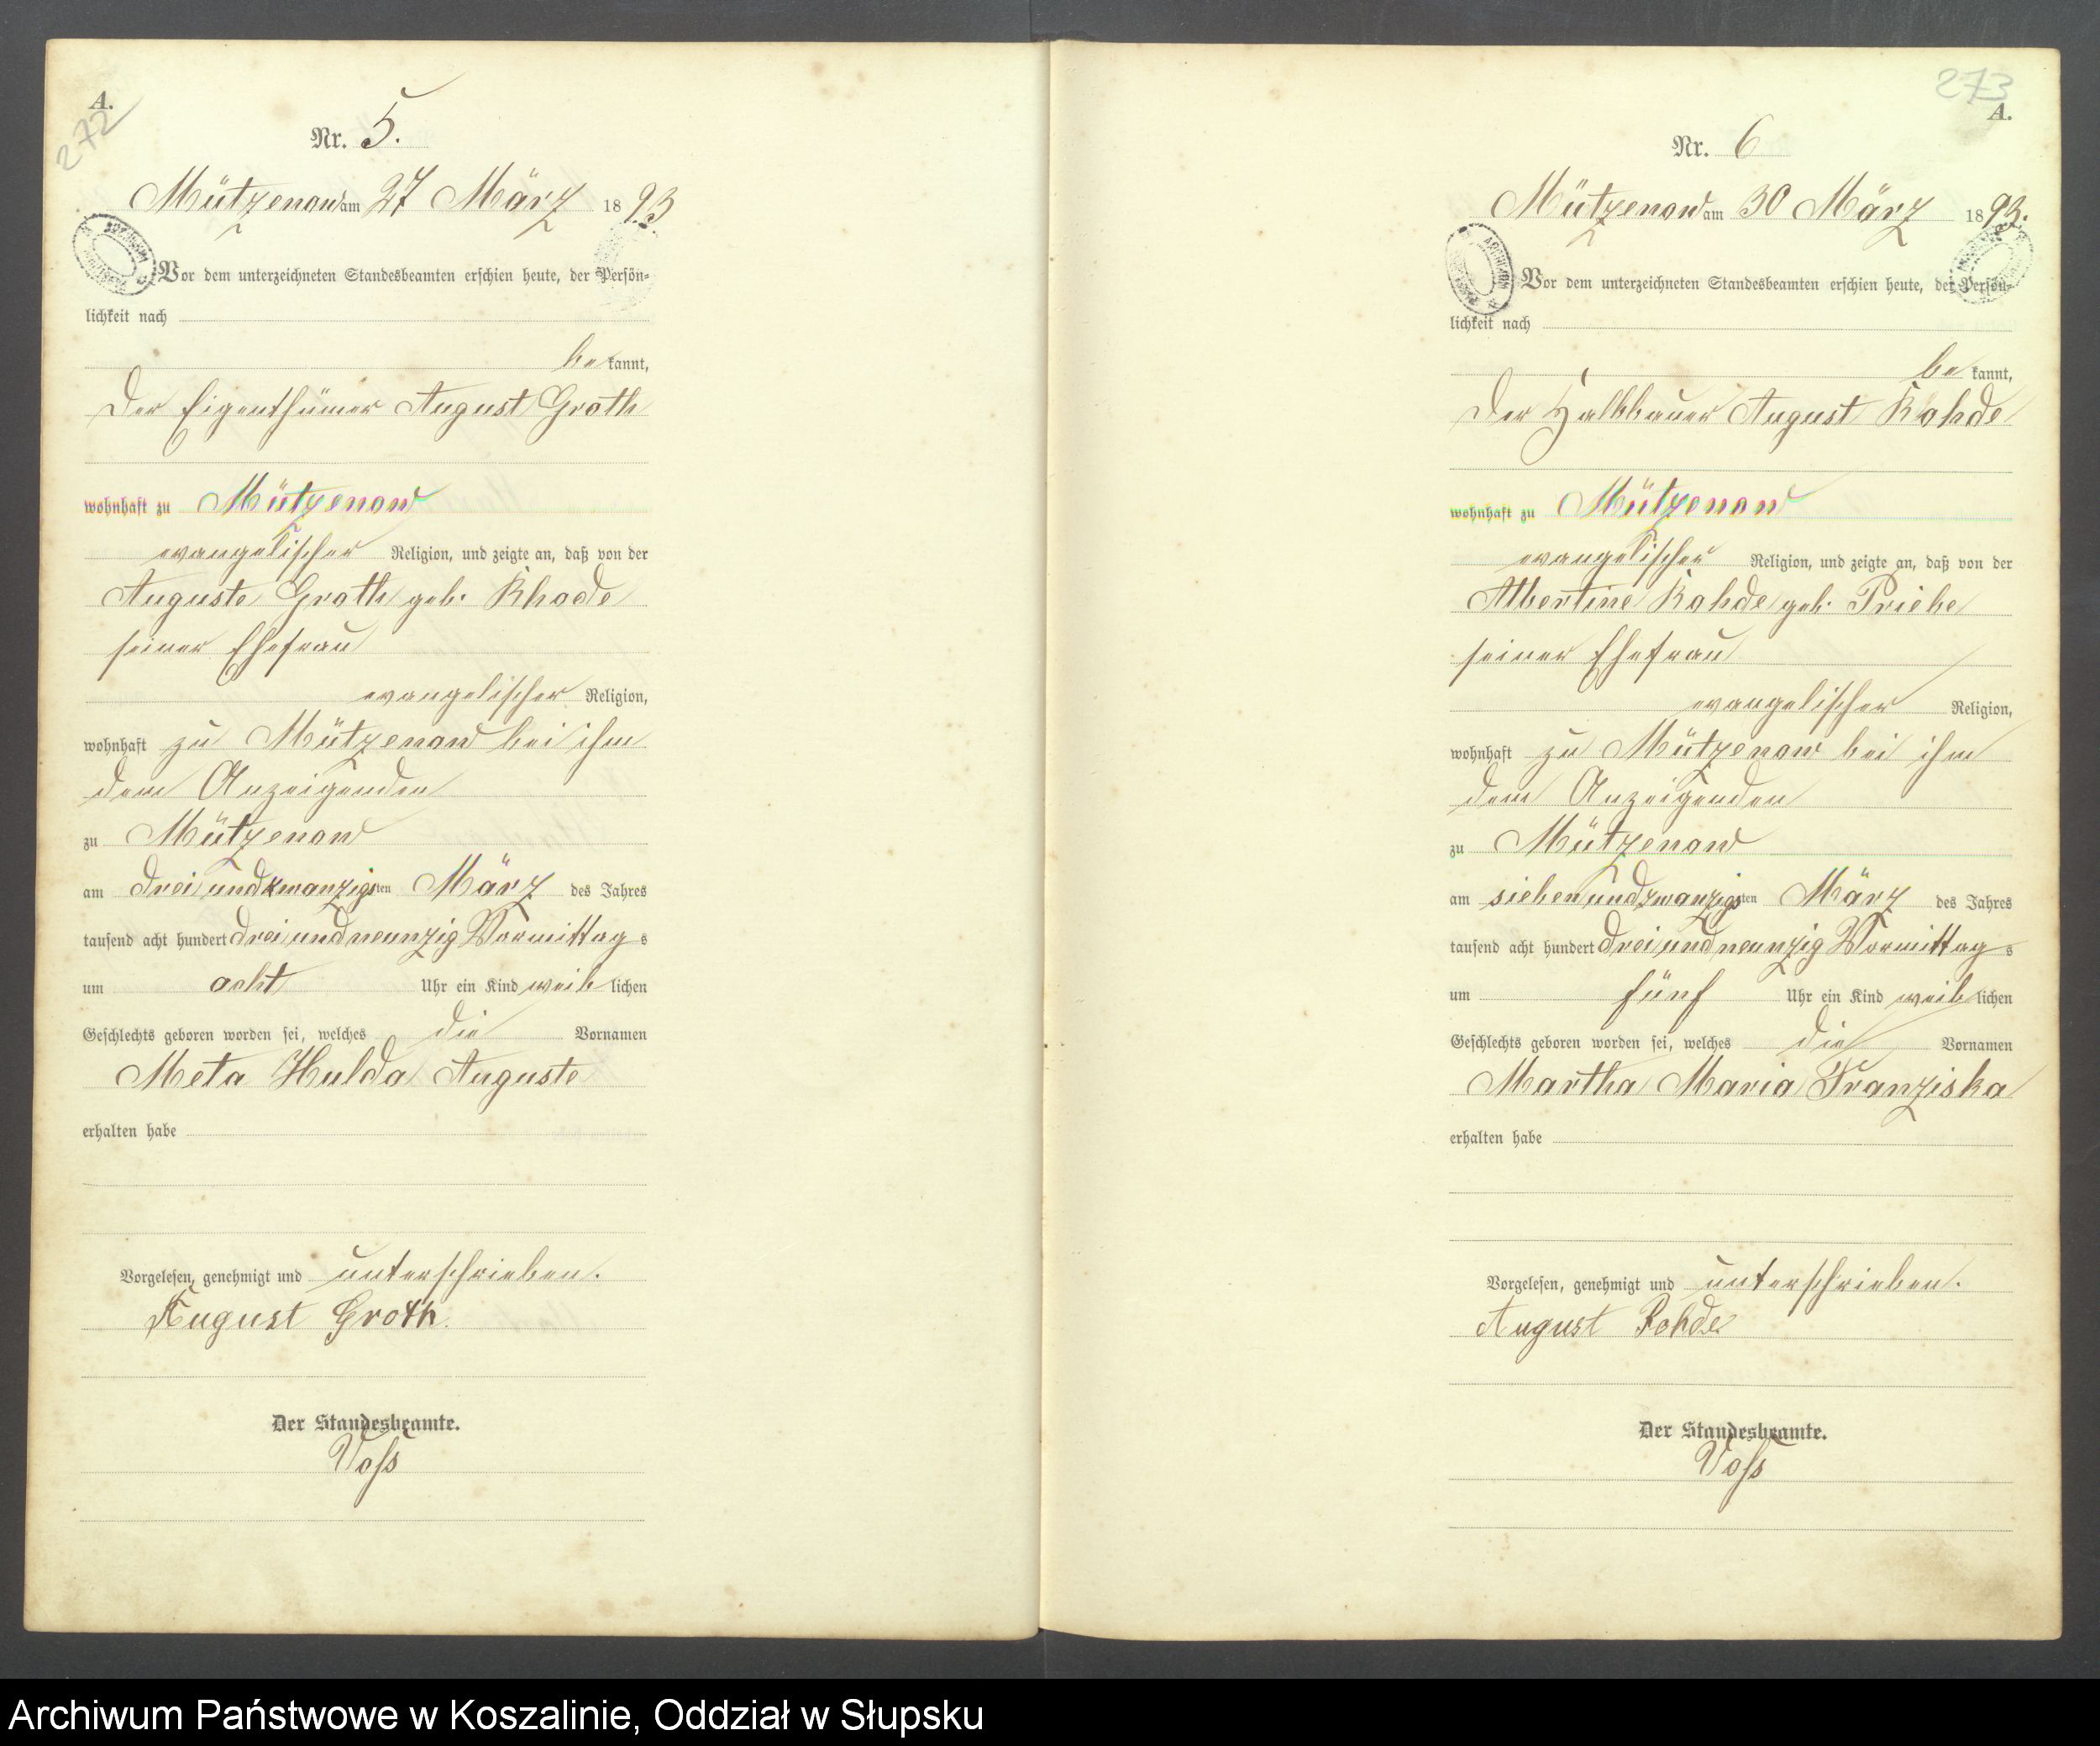 272
A.
Nr. 5.
Mützenow am 27 März 1893
Vor dem unterzeichneten Standesbeamten erschien heute, der Persön-
lichkeit nach
bekannt,
der Eigenthümer August Groth
wohnhaft zu Mützenow
evangelischer Religion, und zeigte an, daß von der
Auguste Groth geb. Rhode
seiner Ehefrau
evangelischer Religion,
wohnhaft zu Mützenow bei ihm
dem Anzeigenden
zu Mützenow
am dreiundzwanzigsten März des Jahres
tausend acht hundert dreiundneunzig Vormittags
um acht Uhr ein Kind weiblichen
Geschlechts geboren worden sei, welches die Vornamen
Meta Hulda Auguste
erhalten habe
Vorgelesen, genehmigt und unterschrieben.
August Groth.
Der Standesbeamte.
Voß
273
A.
Nr. 6
Mützenow am 30 März 1893.
Vor dem unterzeichneten Standesbeamten erschien heute, der Persön-
lichkeit nach
bekannt,
der Halbbauer August Rohde
wohnhaft zu Mützenow
evangelischer Religion, und zeigte an, daß von der
Albertine Rohde geb. Priebe
seiner Ehefrau
evangelischer Religion,
wohnhaft zu Mützenow bei ihm
dem Anzeigenden
zu Mützenow
am siebenundzwanzigsten März des Jahres
tausend acht hundert dreiundneunzig Vormittags
um fünf Uhr ein Kind weiblichen
Geschlechts geboren worden sei, welches die Vornamen
Martha Maria Franziska
erhalten habe
Vorgelesen, genehmigt und unterschrieben.
August Rohde
Der Standesbeamte.
Voß
Archiwum Państwowe w Koszalinie, Oddział w Słupsku